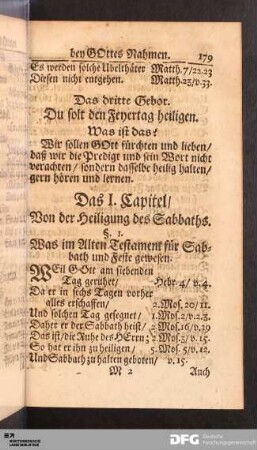 bey GOttes Nahmen. 179
Es werden solche Ubelthäter Matth. 7/22.23
Diesen nicht entgehen. Matth. 23/v.33.
Das dritte Gebot.
Du solt den Feyertag heiligen.
Was ist das?
Wir sollen GOtt fürchten und lieben/
daß wir die Predigt und sein Wort nicht
verachten/ sondern dasselbe heilig halten/
gern hören und lernen.
Das I. Capitel/
Von der Heiligung des Sabbaths.
§. 1.
Was im Alten Testament für Sab-
bath und Feste gewesen.
WEil GOtt am siebenden
Tag geruhet/ Hebr. 4/ v. 4.
Da er in sechs Tagen vorher
alles erschaffen/ 2. Mos. 20/ 11.
Und solchen Tag gesegnet/ 1. Mos. 2/v.2.3.
Daher er der Sabbath heist/ 2. Mos. 16/v.29
Das ist/ die Ruhe des HErrn; 2. Mos. 2/v. 15.
So hat er ihn zu heiligen/ 5. Mos. 5/v.12.
Und Sabbath zu halten geboten/ v. 15.
M 2 Auch
DFG Deutsche
Forschungsgemeinschaft